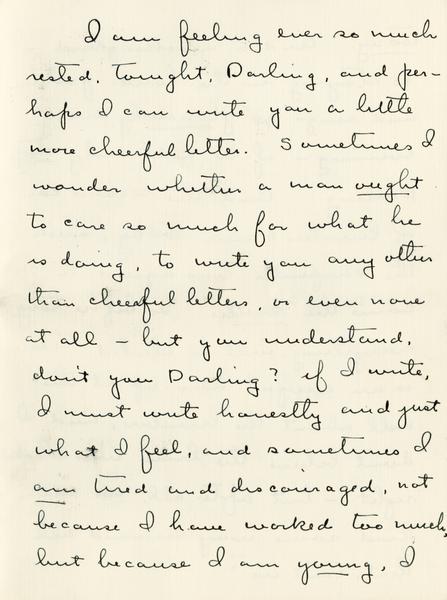 I am feeling ever so much
rested, tonight, Darling, and per-
haps I can write you a little
more cheerful letter. Sometimes I
wonder whether a man ought
to care so much for what he
is doing, to write you any other
than cheerful letters, or even none
at all – but you understand,
don't you Darling? if I write,
I must write honestly and just
what I feel, and sometimes I
am tired and discouraged, not
because I have worked too much,
but because I am young, I